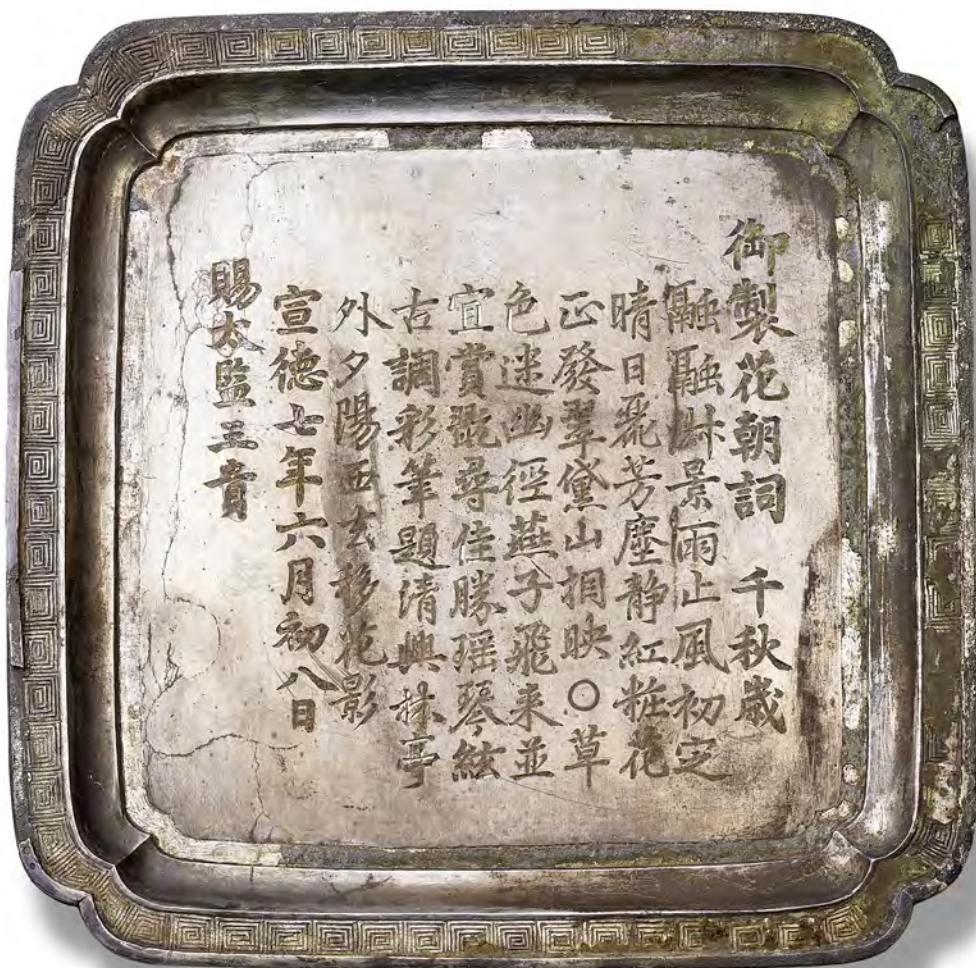 御製花朝詞 千秋歲
融融景雨止風初定
晴日麗芳塵靜紅粧花
正發翠黛山相映〇草
色迷幽徑燕子飛来並
宜賞翫尋佳勝瑶琴絃
古調彩筆題清興林亭
外夕陽西去移花影
宣德七年六月初八日
賜太監王貴